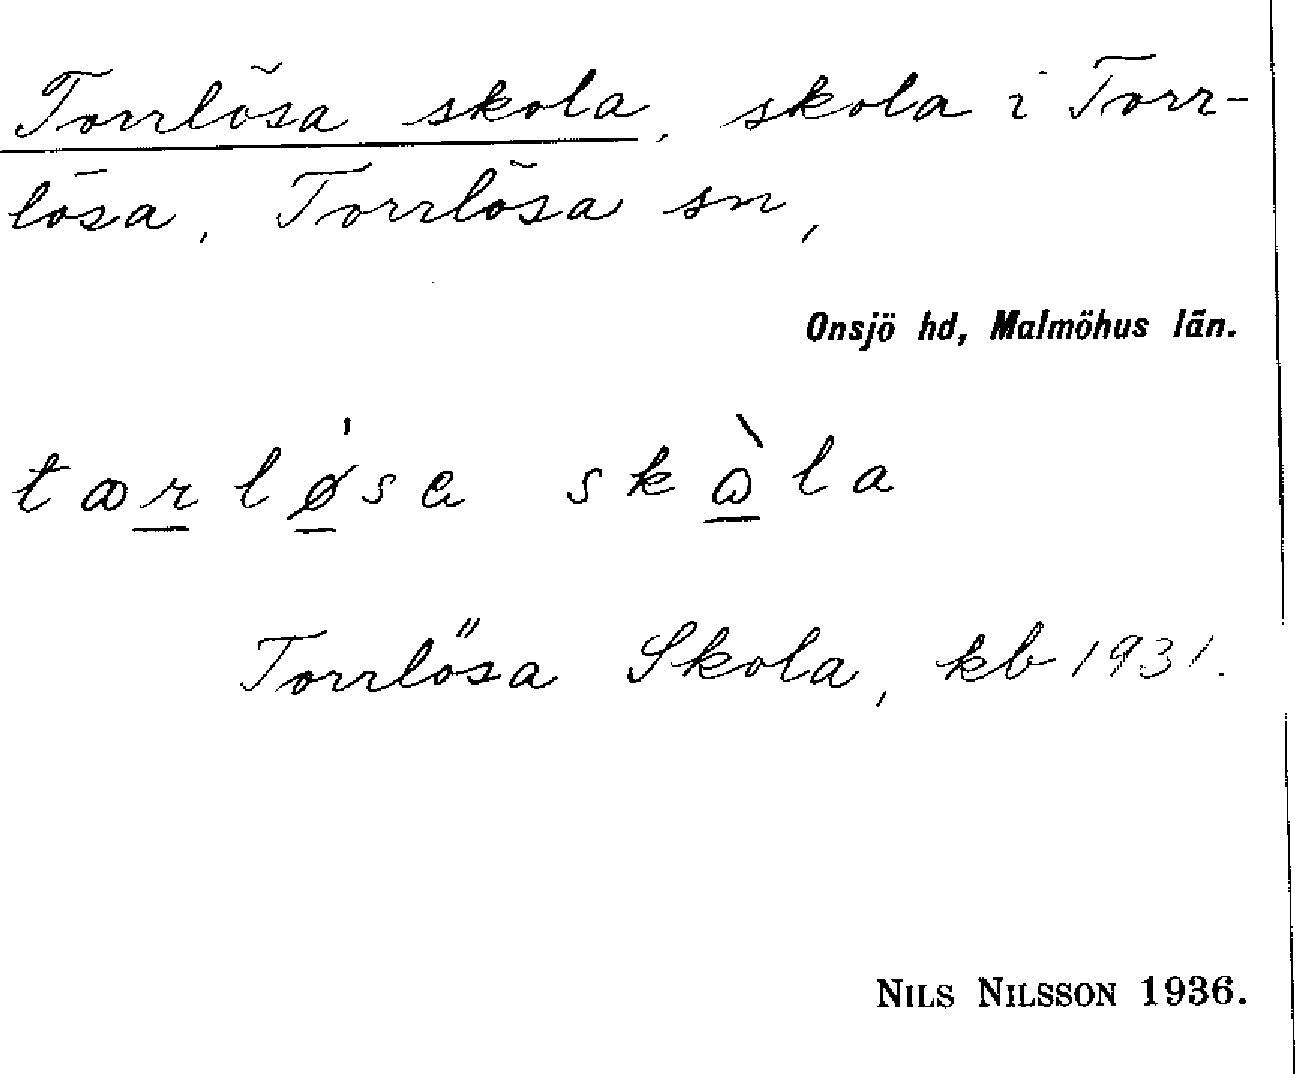 Torrlösa skola, skola i Torr-
lösa, Torrlösa sn,
Onsjö hd, Malmöhus län.
tꝏr̲lǿ̲sa skɷ̲̀la
Torrlösa Skola, kb 1931.
NILS NILSSON 1936.